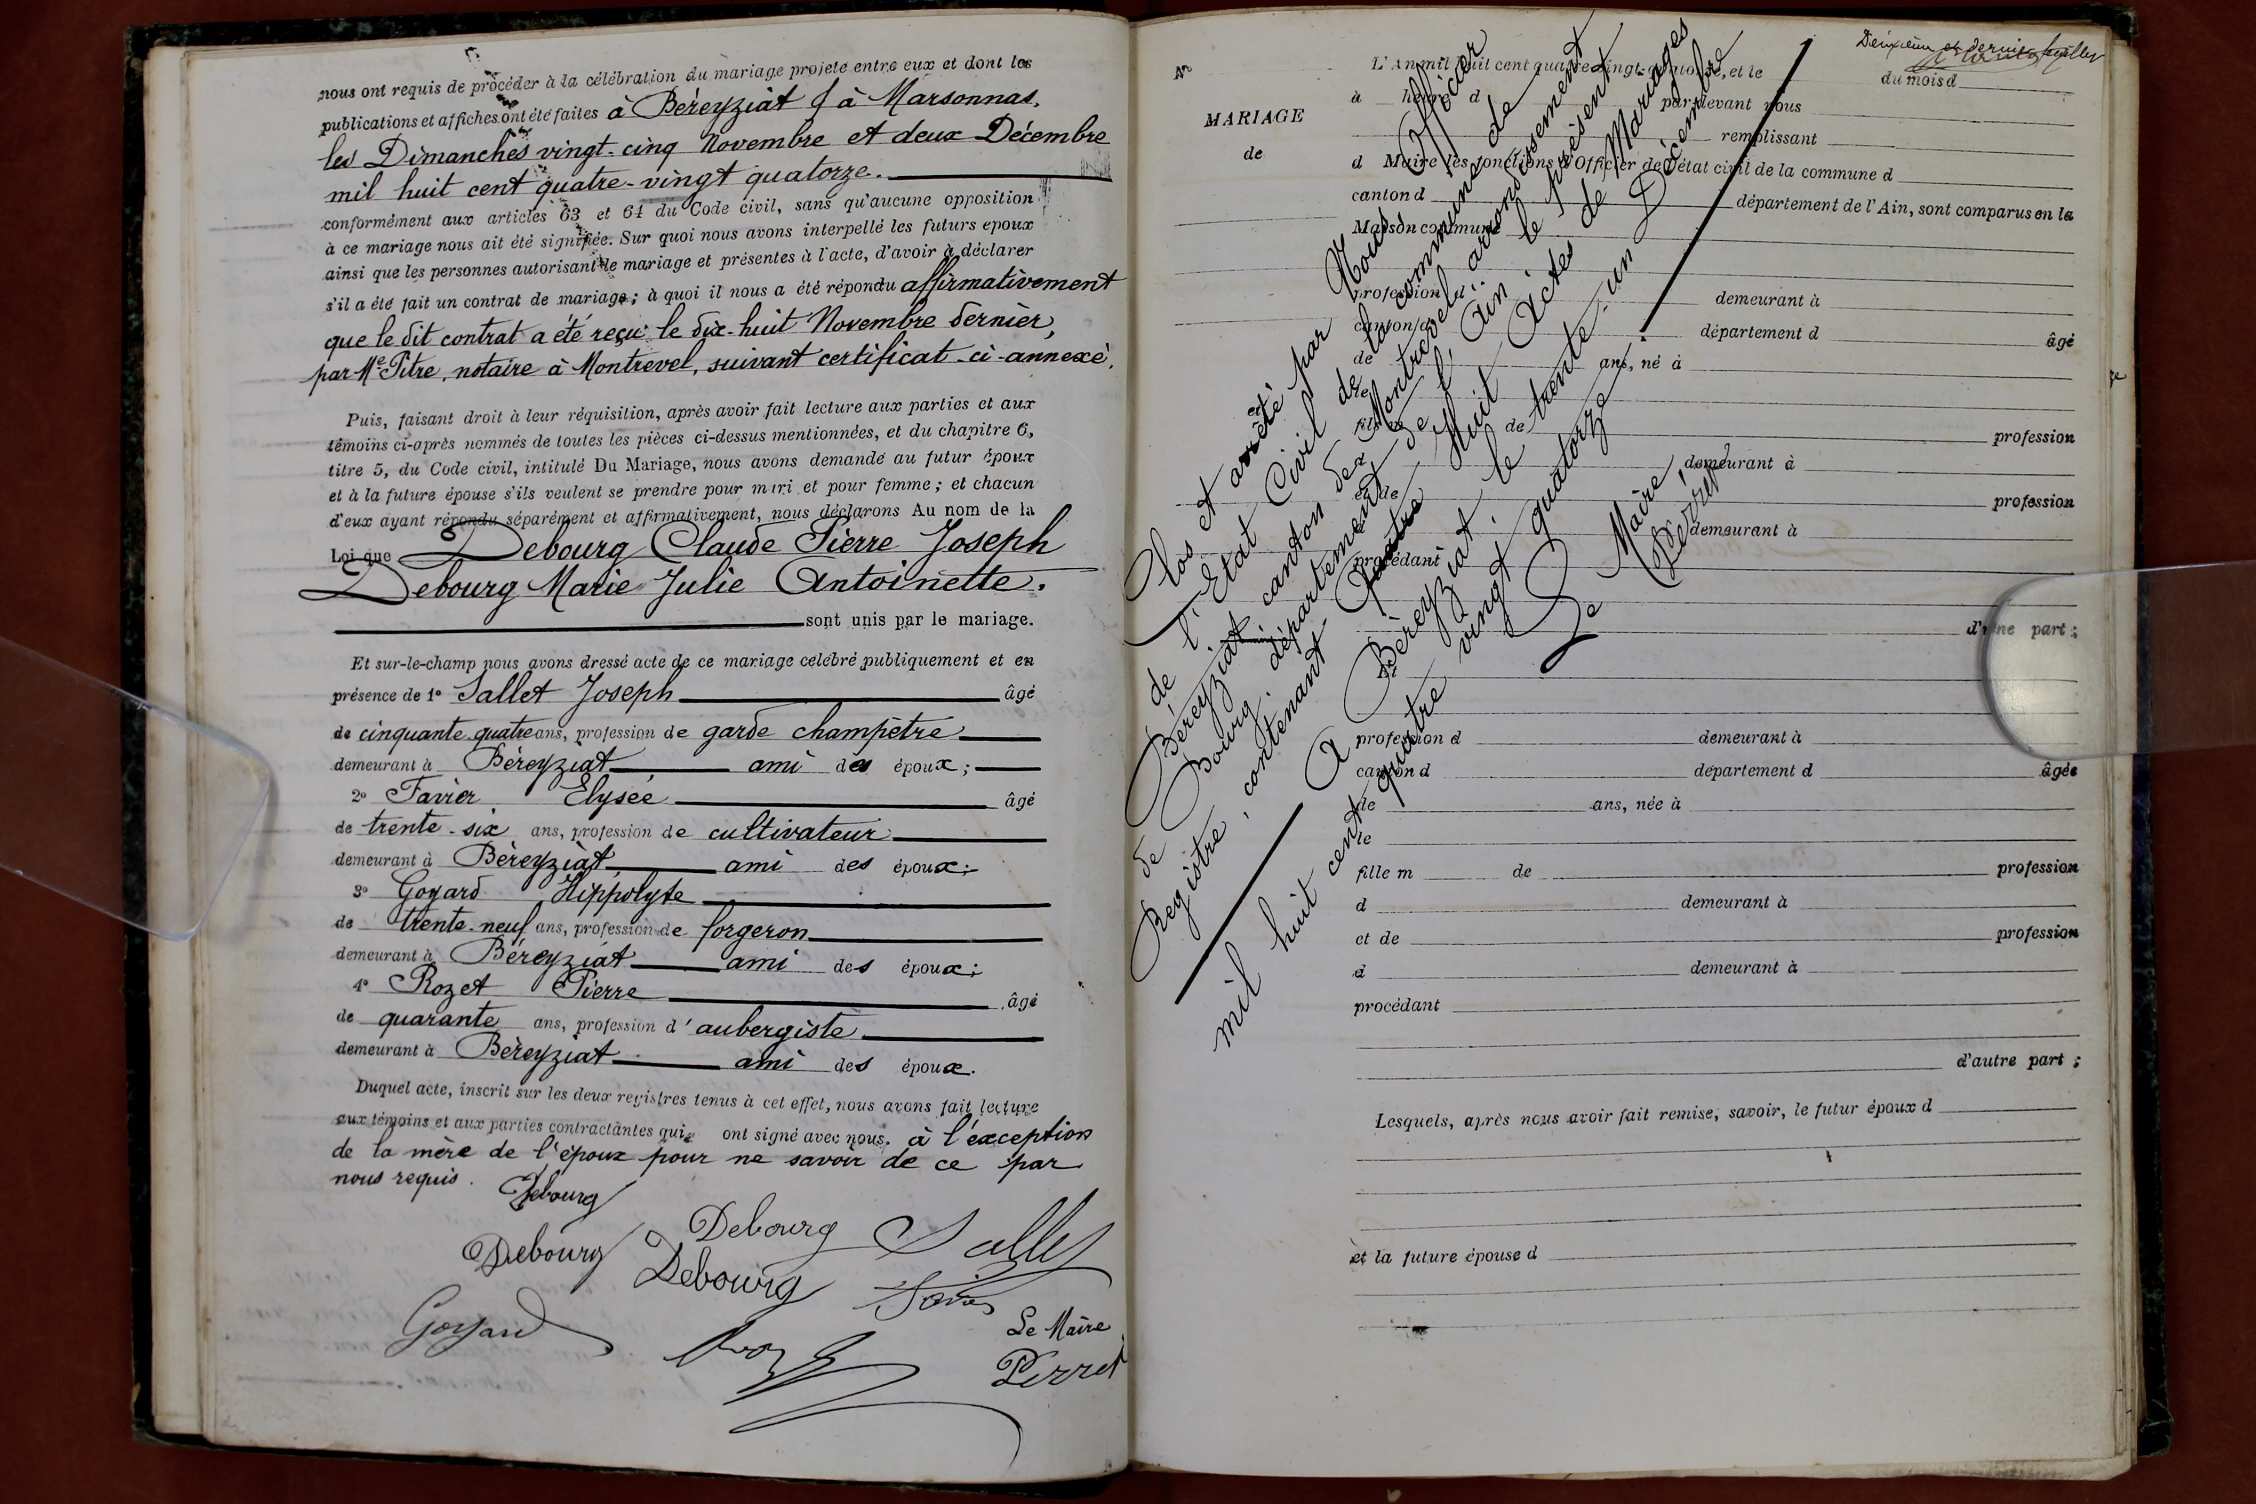 nous ont requis de procéder à la célébration du mariage projeté entre eux et dont les
publications et affiches ont été faites à Béreyziat & à Marsonnas,
les Dimanches vingt-cinq Novembre et deux Décembre
mil huit cent quatre-vingt quatorze.
conformément aux articles 63 et 64 du Code civil, sans qu'aucune opposition
à ce mariage nous ait été signifiée. Sur quoi nous avons interpellé les futurs époux
ainsi que les personnes autorisant le mariage et présentes à l'acte, d'avoir à déclarer
s'il a été fait un contrat de mariage; à quoi il nous a été répondu affirmativement
que le dit contrat a été reçu le dix-huit Novembre dernier,
par Me Pitre, notaire à Montrevel, suivant certificat ci-annexé.
Puis, faisant droit à leur réquisition, après avoir fait lecture aux parties et aux
témoins ci-après nommés de toutes les pièces ci-dessus mentionnées, et du chapitre 6,
titre 5, du Code civil, intitulé Du Mariage, nous avons demandé au futur époux
et à la future épouse s'ils veulent se prendre pour mari et pour femme; et chacun
d'eux ayant répondu séparément et affirmativement, nous déclarons Au nom de la
Loi que Debourg Claude Pierre Joseph
Debourg Marie Julie Antoinette.
sont unis par le mariage.
Et sur-le-champ nous avons dressé acte de ce mariage célébré publiquement et en
présence de 1° Sallet Joseph âgé
de cinquante quatre ans, profession de garde champêtre
demeurant à Béreyziat ami des époux;
2° Favier Elysée âgé
de trente-six ans, profession de cultivateur
demeurant à Béreyziat ami des époux;
3° Goyard Hippolyte
de trente-neuf ans, profession de forgeron
demeurant à Béreyziat ami des époux;
4° Rozet Pierre âgé
de quarante ans, profession d'aubergiste
demeurant à Béreyziat ami des époux.
Duquel acte, inscrit sur les deux registres tenus à cet effet, nous avons fait lecture
aux témoins et aux parties contractantes qui ont signé avec nous. à l'exception
de la mère de l'époux pour ne savoir de ce par
nous requis.
Debourg
Debourg Sallet
Debourg Debourg
Goyard
Le Maire
Perret
Deuxième et dernier feuillet
No
MARIAGE
de
L'An mil huit cent quatre-vingt-quatorze, et le du mois d
à heure d par devant nous
remplissant
d Maire les fonctions d'Officier de l'état civil de la commune d
canton d département de l'Ain, sont comparus en la
Maison commune
profession d demeurant à
canton d département d âgé
de ans, né à
le
fils m de profession
d demeurant à
et de profession
d demeurant à
procédant
d'une part;
Et
profession d demeurant à
canton d département d âgée
de ans, née à
le
fille m de profession
d demeurant à
et de profession
d demeurant à
procédant
d'autre part;
Lesquels, après nous avoir fait remise, savoir, le futur époux d
et la future épouse d
Clos et arrêté par Nous Officier
de l'Etat Civil de la commune de
Béreyziat canton de Montrevel arrondissement
de Bourg, département de l'Ain le présent
Registre, contenant quatre Huit Actes de Mariages
A Béreyziat, le trente-un Décembre
mil huit cent quatre vingt quatorze
Le Maire
Perret